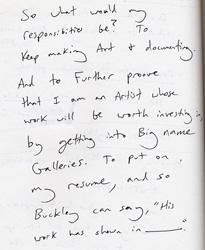 So what would my
responsibities be? To
Keep making Art & documenting.
And to Further prove
that I am an Artist whose
work will be worth investing in,
by getting into Big name
Galleries. To put on
my resume, and so
Buckley can say, "His
work has shown in ____."